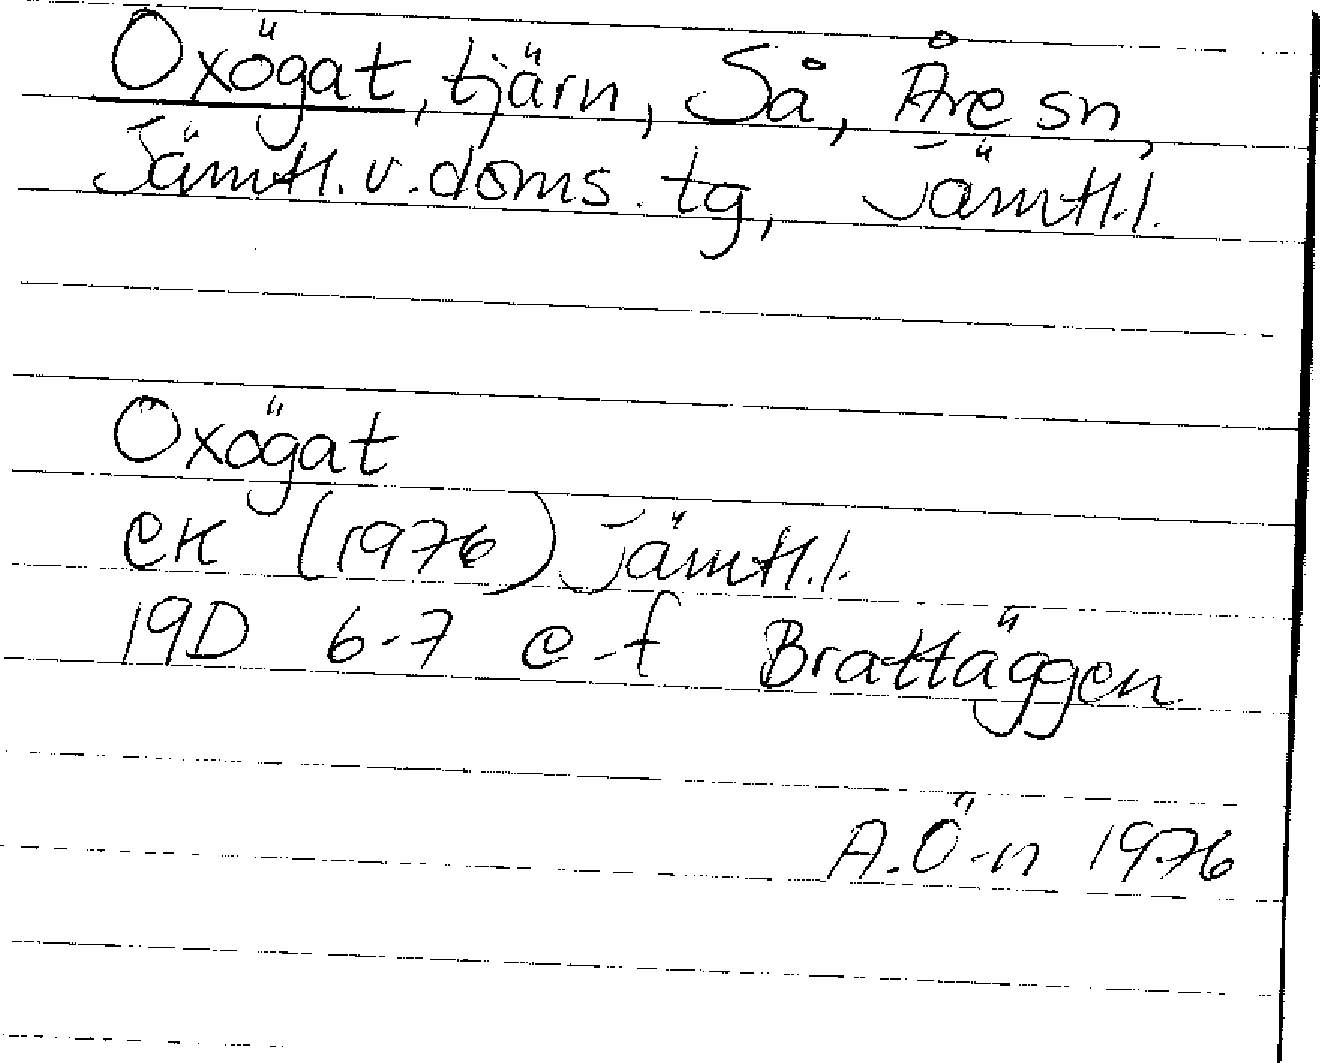 Oxögat, tjärn, Så, Åre sn,
Jämtl. v. doms. tg, Jämtl. l.
Oxögat
ek (1976) Jämtl. l.
19D 6-7 e-f Brattäggen
A. Ö-n 1976